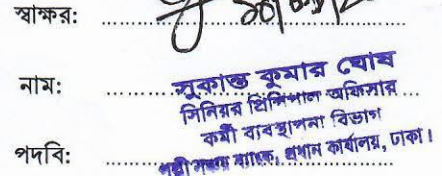 স্বাক্ষর:
নাম: সুকান্ত কুমার ঘোষ
সিনিয়র প্রিন্সিপাল অফিসার
কর্মী ব্যবস্থাপনা বিভাগ
পদবি: পল্লী সঞ্চয় ব্যাংক, প্রধান কার্যালয়, ঢাকা।